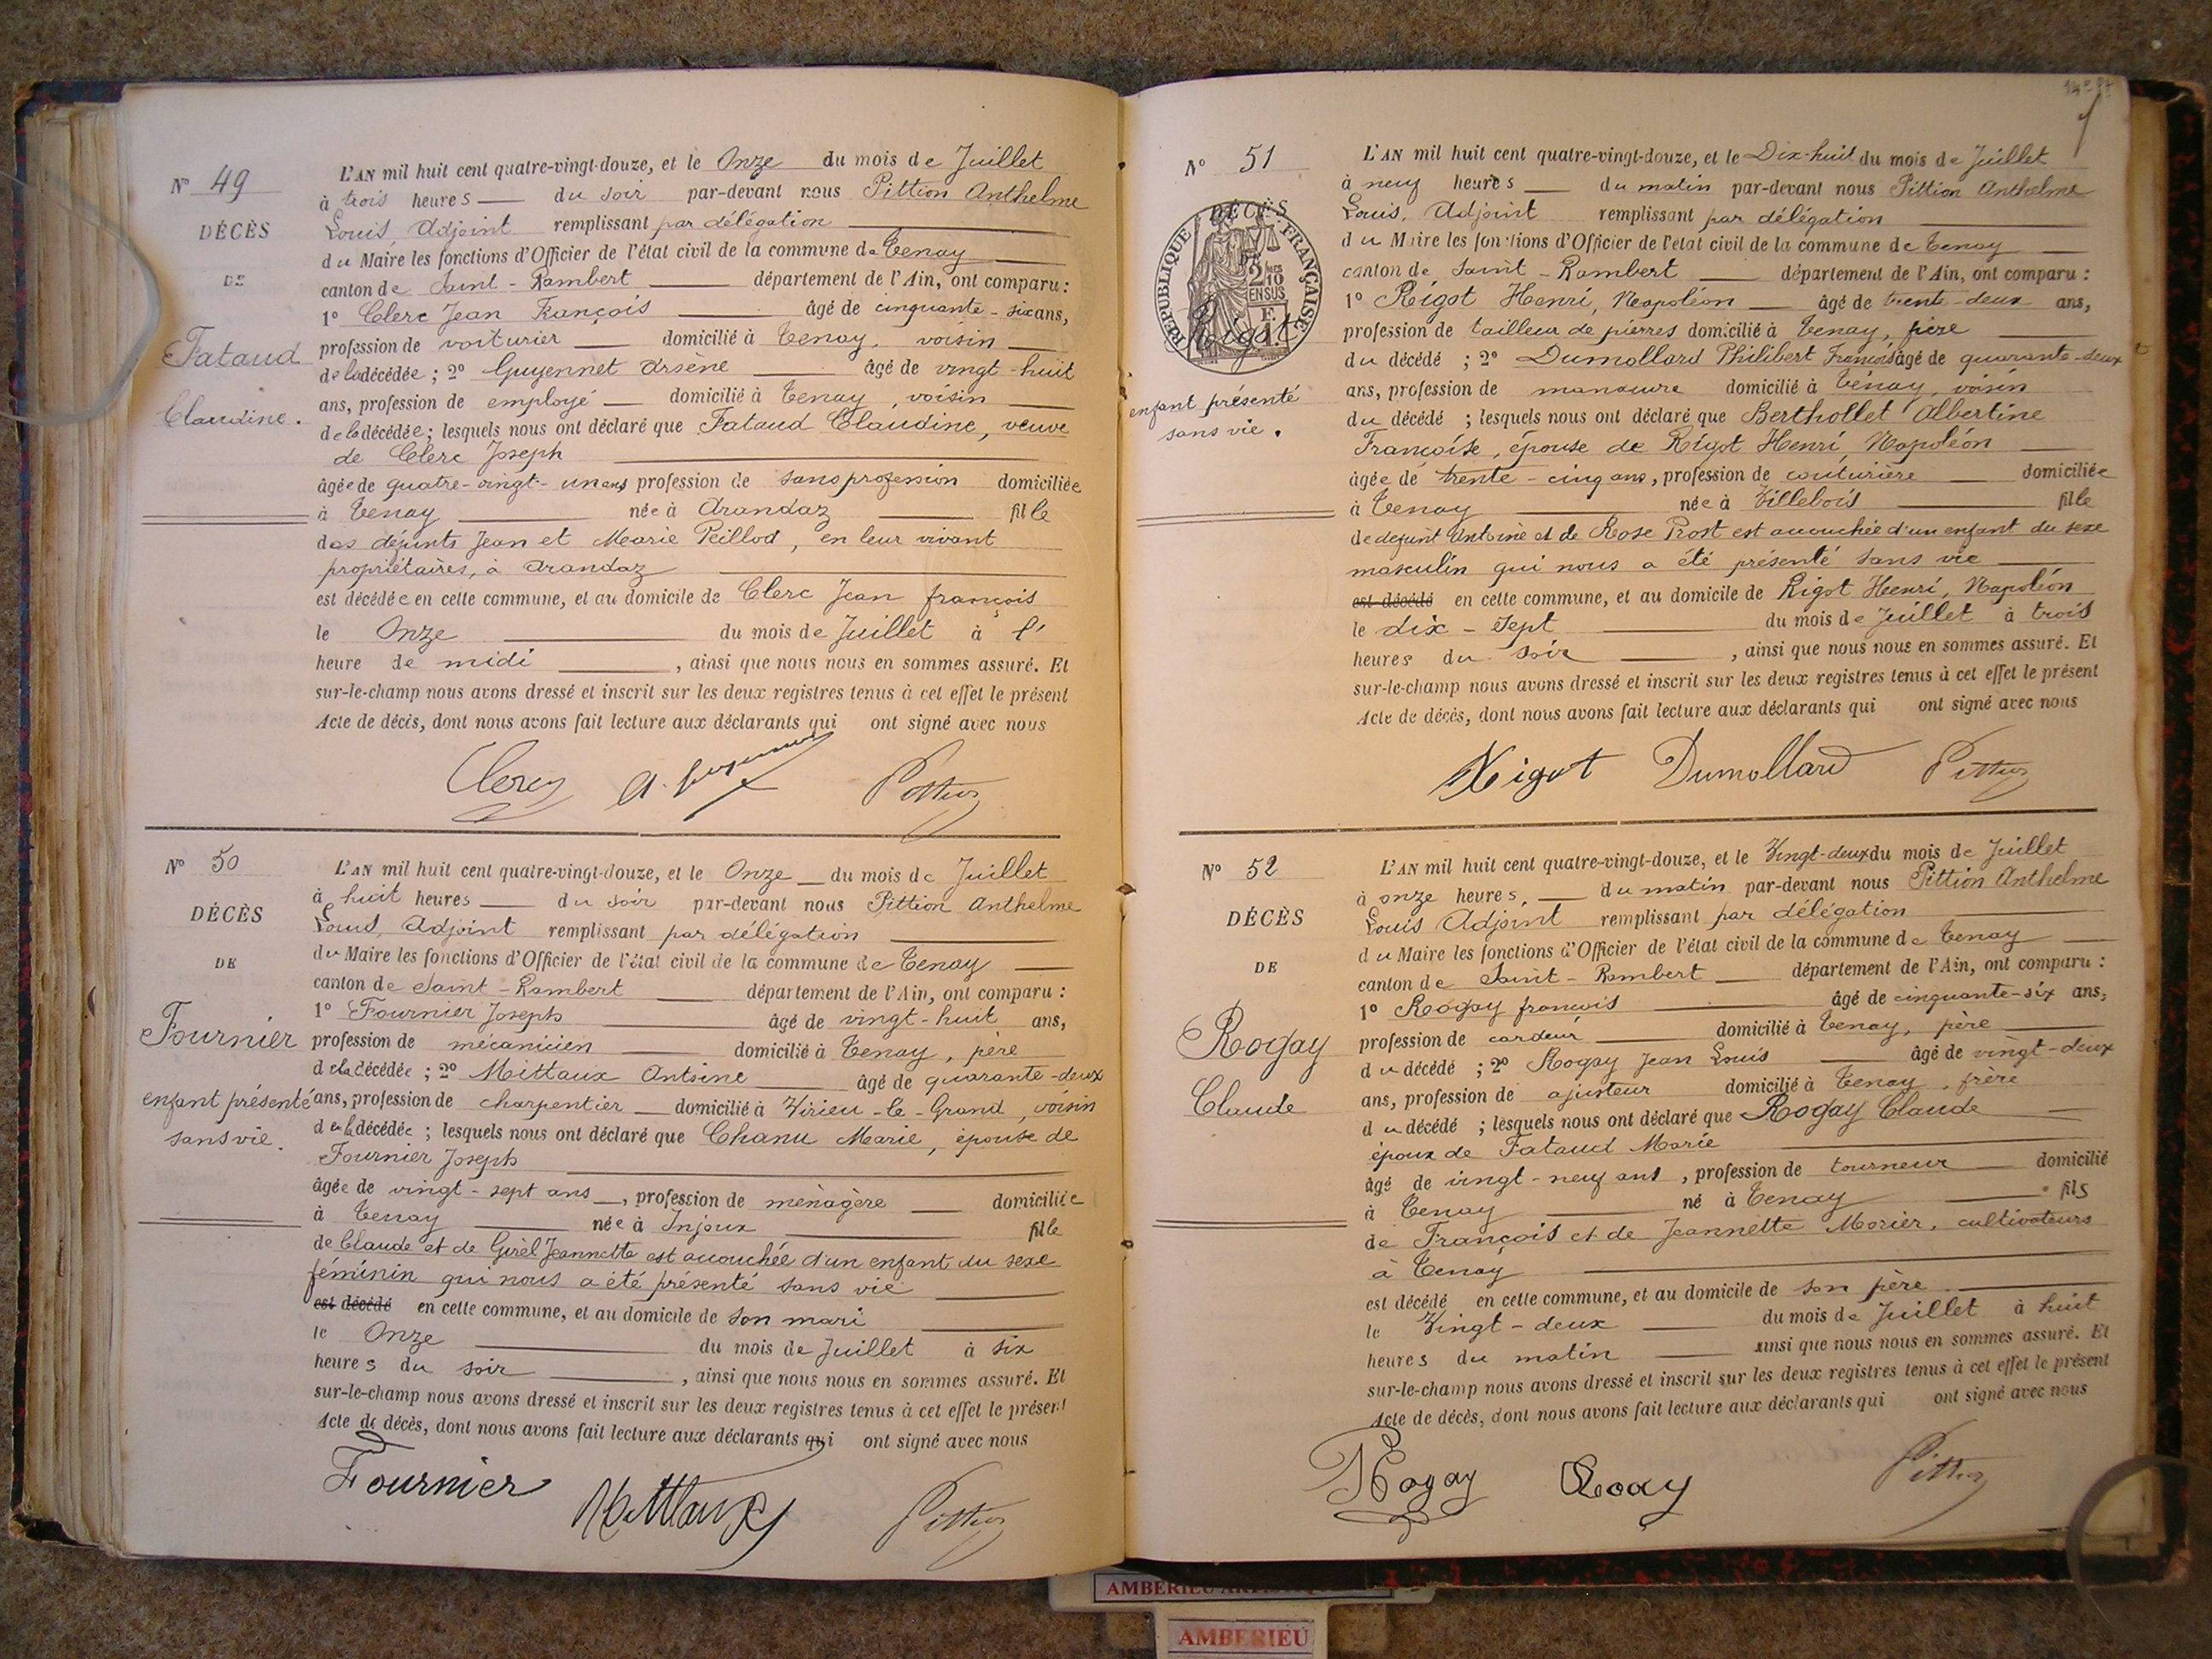 N° 49
DÉCÈS
DE
Fataud
Claudine.
L'AN mil huit cent quatre-vingt-douze, et le Onze du mois de Juillet
à trois heures du soir par-devant nous Pittion Anthelme
Louis, Adjoint remplissant par délégation
du Maire les fonctions d'Officier de l'état civil de la commune de Tenay
canton de Saint-Rambert département de l'Ain, ont comparu :
1° Clerc Jean François âgé de cinquante-six ans,
profession de voiturier domicilié à Tenay, voisin
de la décédée ; 2° Guyennet Arsène âgé de vingt-huit
ans, profession de employé domicilié à Tenay, voisin
de la décédée ; lesquels nous ont déclaré que Fataud Claudine, veuve
de Clerc Joseph
âgée de quatre-vingt-un ans profession de sans profession domiciliée
à Tenay née à Arandaz fille
des défunts Jean et Marie Peillod, en leur vivant
propriétaires, à Arandaz
est décédée en cette commune, et au domicile de Clerc Jean françois
le Onze du mois de Juillet à l'
heure de midi, ainsi que nous nous en sommes assuré. Et
sur-le-champ nous avons dressé et inscrit sur les deux registres tenus à cet effet le présent
Acte de décès, dont nous avons fait lecture aux déclarants qui ont signé avec nous
Clerc Pittion
N° 50
DÉCÈS
DE
Fournier
enfant présenté
sans vie.
L'AN mil huit cent quatre-vingt-douze, et le Onze du mois de Juillet
à huit heures du soir par-devant nous Pittion Anthelme
Louis, Adjoint remplissant par délégation
du Maire les fonctions d'Officier de l'état civil de la commune de Tenay
canton de Saint-Rambert département de l'Ain, ont comparu :
1° Fournier Joseph âgé de vingt-huit ans,
profession de mécanicien domicilié à Tenay, père
de la décédée ; 2° Mittaux Antoine âgé de quarante-deux
ans, profession de charpentier domicilié à Virieu-le-Grand, voisin
de la décédée ; lesquels nous ont déclaré que Chanu Marie, épouse de
Fournier Joseph
âgée de vingt-sept ans, profession de ménagère domiciliée
à Tenay née à Injoux fille
de Claude et de Girel Jeannette est accouchée d'un enfant du sexe
féminin qui nous a été présenté sans vie
est décédé en cette commune, et au domicile de son mari
le Onze du mois de Juillet à six
heures du soir, ainsi que nous nous en sommes assuré. Et
sur-le-champ nous avons dressé et inscrit sur les deux registres tenus à cet effet le présent
Acte de décès, dont nous avons fait lecture aux déclarants qui ont signé avec nous
Fournier Mittaux Pittion
N° 51
DÉCÈS
RÉPUBLIQUE FRANÇAISE
2/10 EN SUS
Rigot
enfant présenté
sans vie.
L'AN mil huit cent quatre-vingt-douze, et le Dix-huit du mois de Juillet
à neuf heures du matin par-devant nous Pittion Anthelme
Louis, Adjoint remplissant par délégation
du Maire les fonctions d'Officier de l'état civil de la commune de Tenay
canton de Saint-Rambert département de l'Ain, ont comparu :
1° Rigot Henri, Napoléon âgé de trente-deux ans,
profession de tailleur de pierres domicilié à Tenay, père
du décédé ; 2° Dumollard Philibert François âgé de quarante-deux
ans, profession de manœuvre domicilié à Tenay, voisin
du décédé ; lesquels nous ont déclaré que Berthollet Albertine
Françoise, épouse de Rigot Henri, Napoléon
âgée de trente-cinq ans, profession de couturière domiciliée
à Tenay née à Villebois fille
de defunt Antoine et de Rose Prost est accouchée d'un enfant du sexe
masculin qui nous a été présenté sans vie
est décédé en cette commune, et au domicile de Rigot Henri, Napoléon
le dix-sept du mois de Juillet à trois
heures du soir, ainsi que nous nous en sommes assuré. Et
sur-le-champ nous avons dressé et inscrit sur les deux registres tenus à cet effet le présent
Acte de décès, dont nous avons fait lecture aux déclarants qui ont signé avec nous
Rigot Dumollard Pittion
N° 52
DÉCÈS
DE
Rogay
Claude
L'AN mil huit cent quatre-vingt-douze, et le Vingt-deux du mois de Juillet
à onze heures, du matin par-devant nous Pittion Anthelme
Louis Adjoint remplissant par délégation
du Maire les fonctions d'Officier de l'état civil de la commune de Tenay
canton de Saint-Rambert département de l'Ain, ont comparu :
1° Rogay francois âgé de cinquante-six ans,
profession de cardeur domicilié à Tenay, père
du décédé ; 2° Rogay Jean Louis âgé de vingt-deux
ans, profession de ajusteur domicilié à Tenay, frère
du décédé ; lesquels nous ont déclaré que Rogay Claude
époux de Fataud Marie
âgé de vingt-neuf ans, profession de tourneur domicilié
à Tenay né à Tenay fils
de François et de Jeannette Morier, cultivateurs
à Tenay
est décédé en cette commune, et au domicile de son père
le Vingt-deux du mois de Juillet à huit
heures du matin ainsi que nous nous en sommes assuré. Et
sur-le-champ nous avons dressé et inscrit sur les deux registres tenus à cet effet le présent
Acte de décès, dont nous avons fait lecture aux déclarants qui ont signé avec nous
Rogay Pittion
AMBERIEU